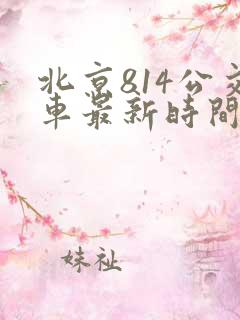 北京814公交
車最新時間
妹祉